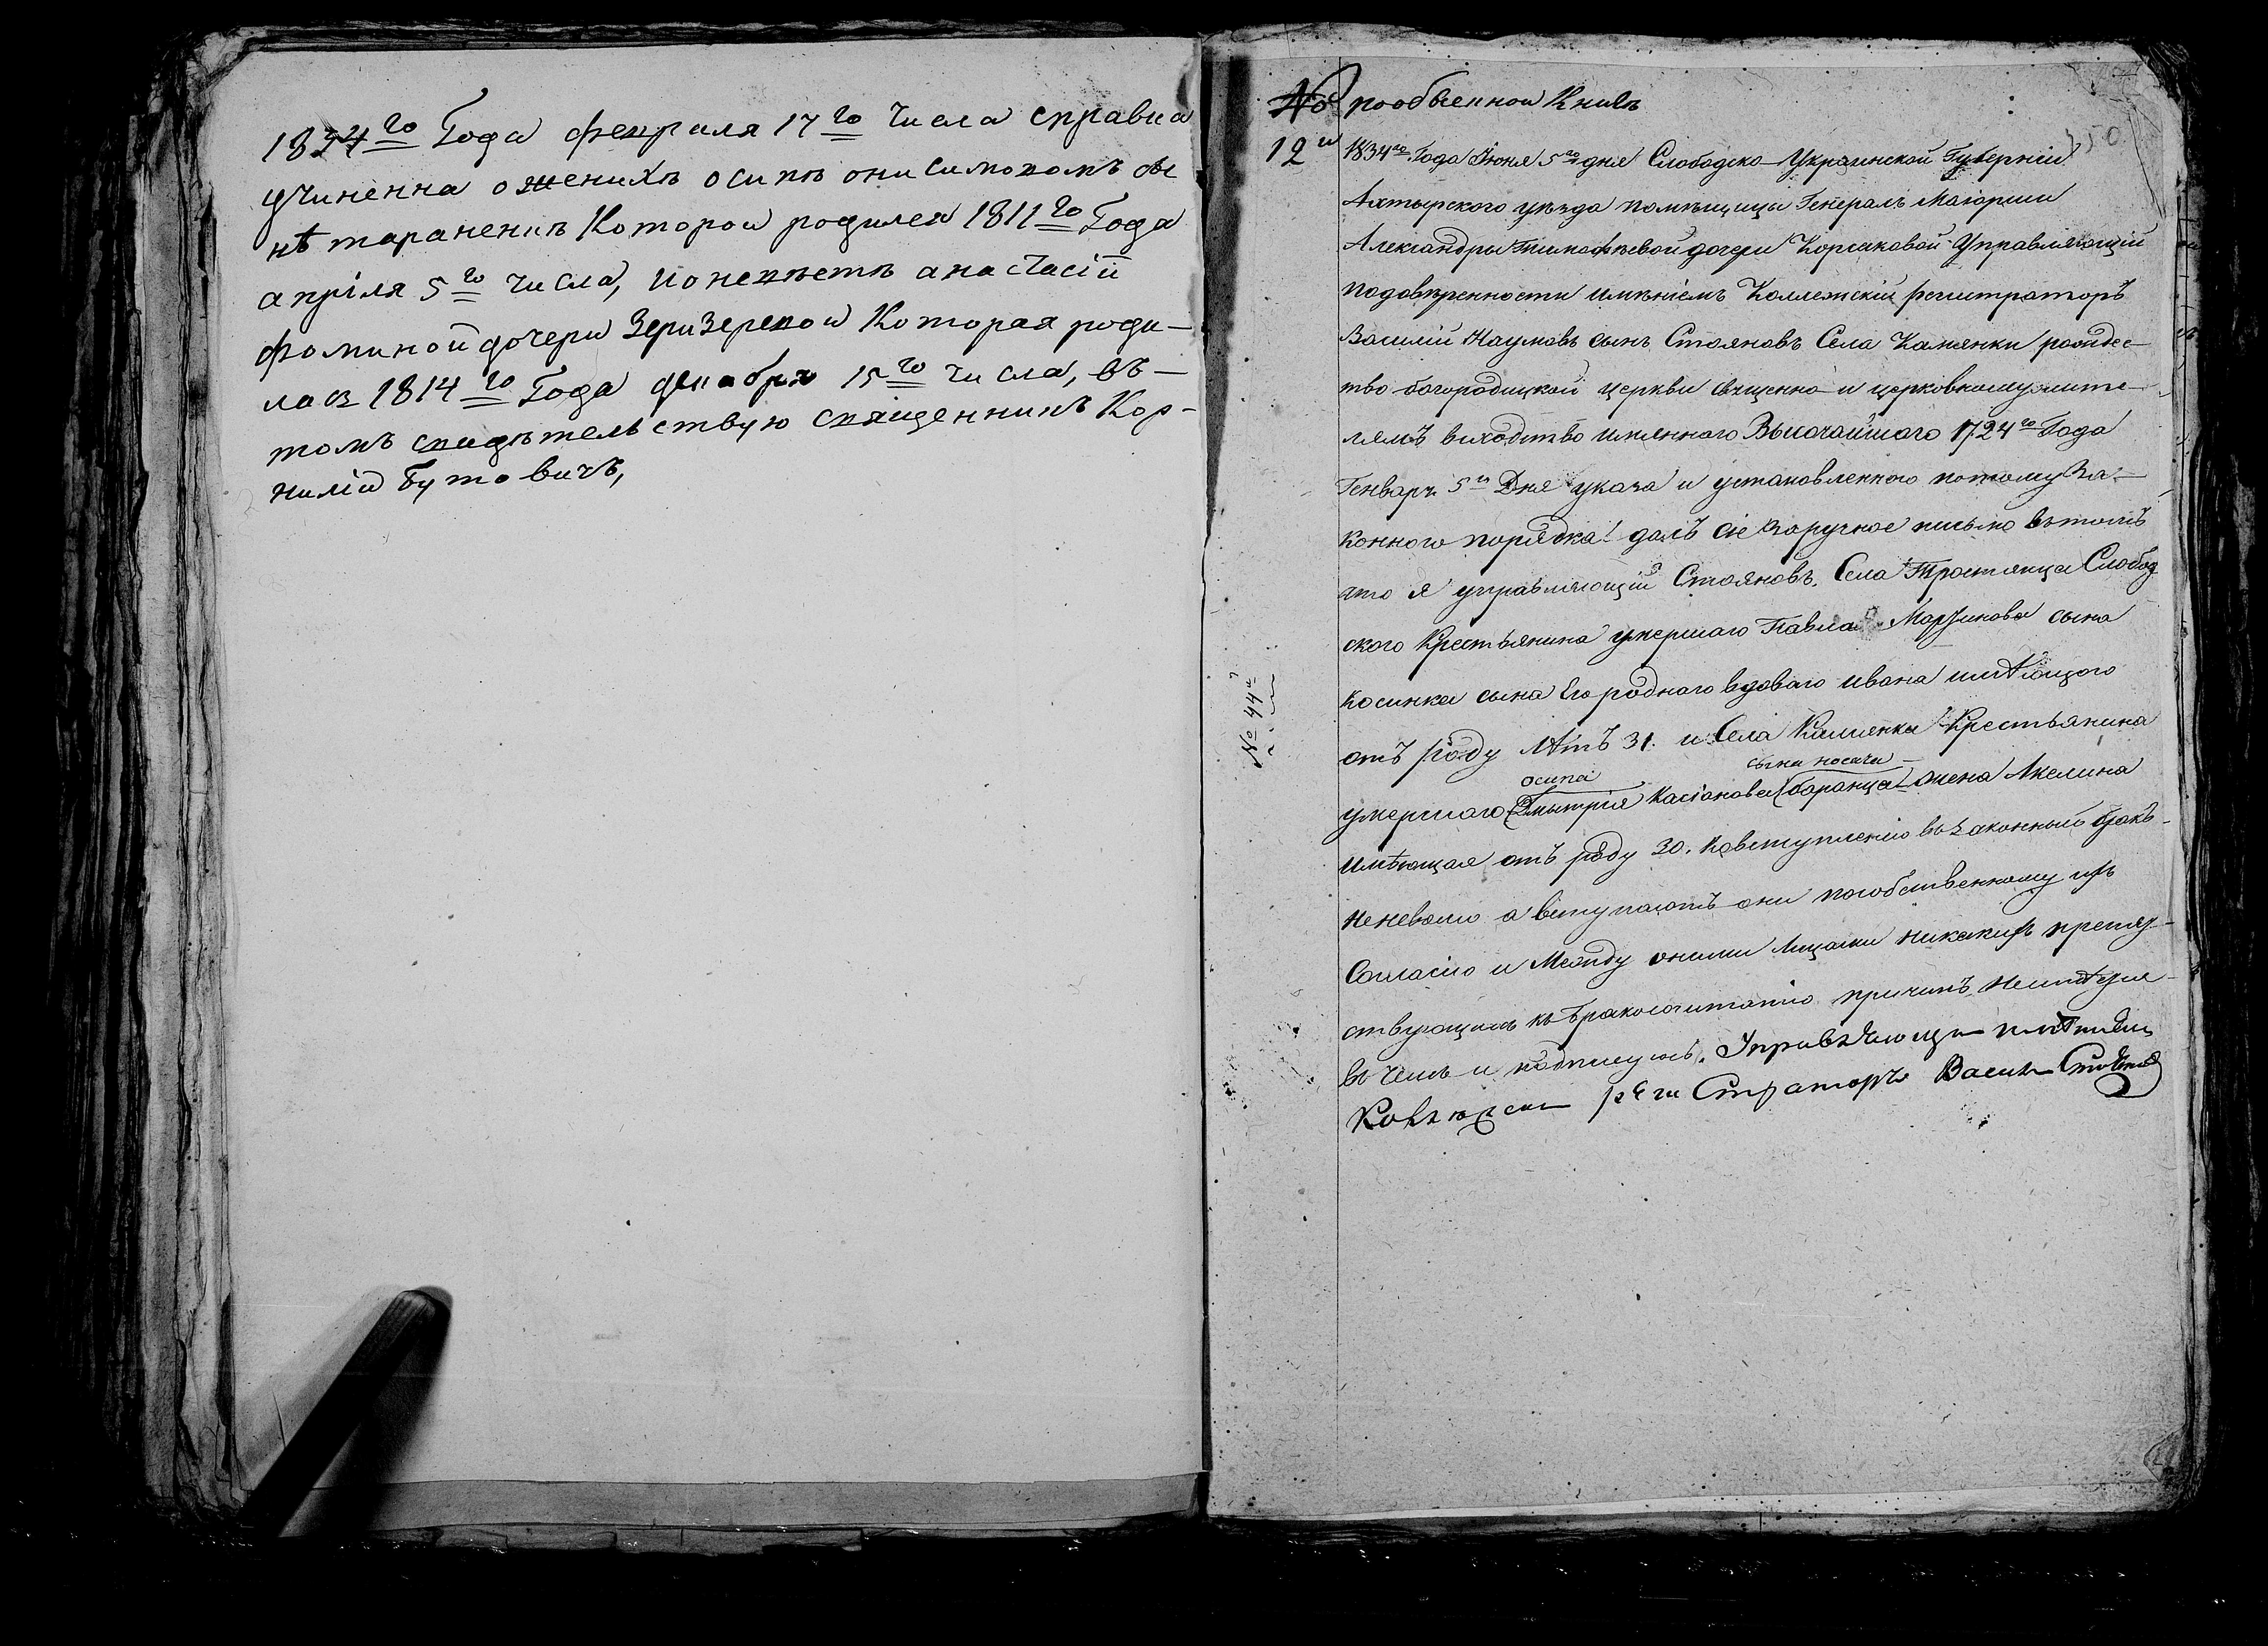 1834го Года февраля 17го Числа справка
учиненна о женихѣ осипѣ онисимовомъ сы
нѣ тараненкѣ Которои родился 1811го Года
апрiля 5го числа, и о невѣстѣ анастасiй
фоминой дочери Зеризеревой Которая роди-
лась 1814го Года декабря 15го числа, въ-
томъ свидѣтельствую священникъ Кор-
нилiй Бутовичъ,
№ пообыскной Книгѣ
12й 1834го Года Июня 5го дня Слободско-Украинской Губернiи
Ахтырского уѣзда помѣщицы Генералъ Маiорши
Александры Тимофѣевой дочери Корсаковой Управляющiй
подовѣренности имѣнiемъ Коллежскiй регистраторъ
Василiй Наумовъ сынъ Стояновъ Села Каменки рождес-
тво-богородицкой церкви священно и церковнослужите-
лямъ всходство имяннаго Высочайшаго 1724го Года
Генваря 5го Дня указа и установленного потому За-
конного порядка: далъ сiе заручное письмо втомъ
что я управляющiй Стояновъ. Села Тростянца Слобод
ского Крестьянина умершаго Павла сына
косинка сына Его роднаго вдоваго ивана имѣющого
отъ роду лѣтъ 31. и Села Каменки Крестьянина
осипа сына носача
умершаго Дмытрiя Касiанова баранца жена Акелина
имѣющая отъ роду 30. ковступленiю взаконный бракъ
неневолю а вступаютъ они пособственному ихъ
Согласiю и Между оными Лицами никакихъ препят-
ствующихъ кбракосочитанiю причинъ неимѣется
вчемъ и подписуюсь. Управляющи имѣниемъ
регистраторъ Васили Стояновъ
№ 44й